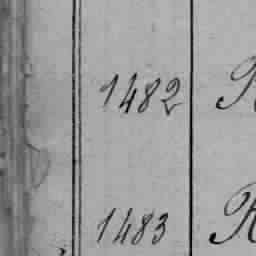 1482
1483